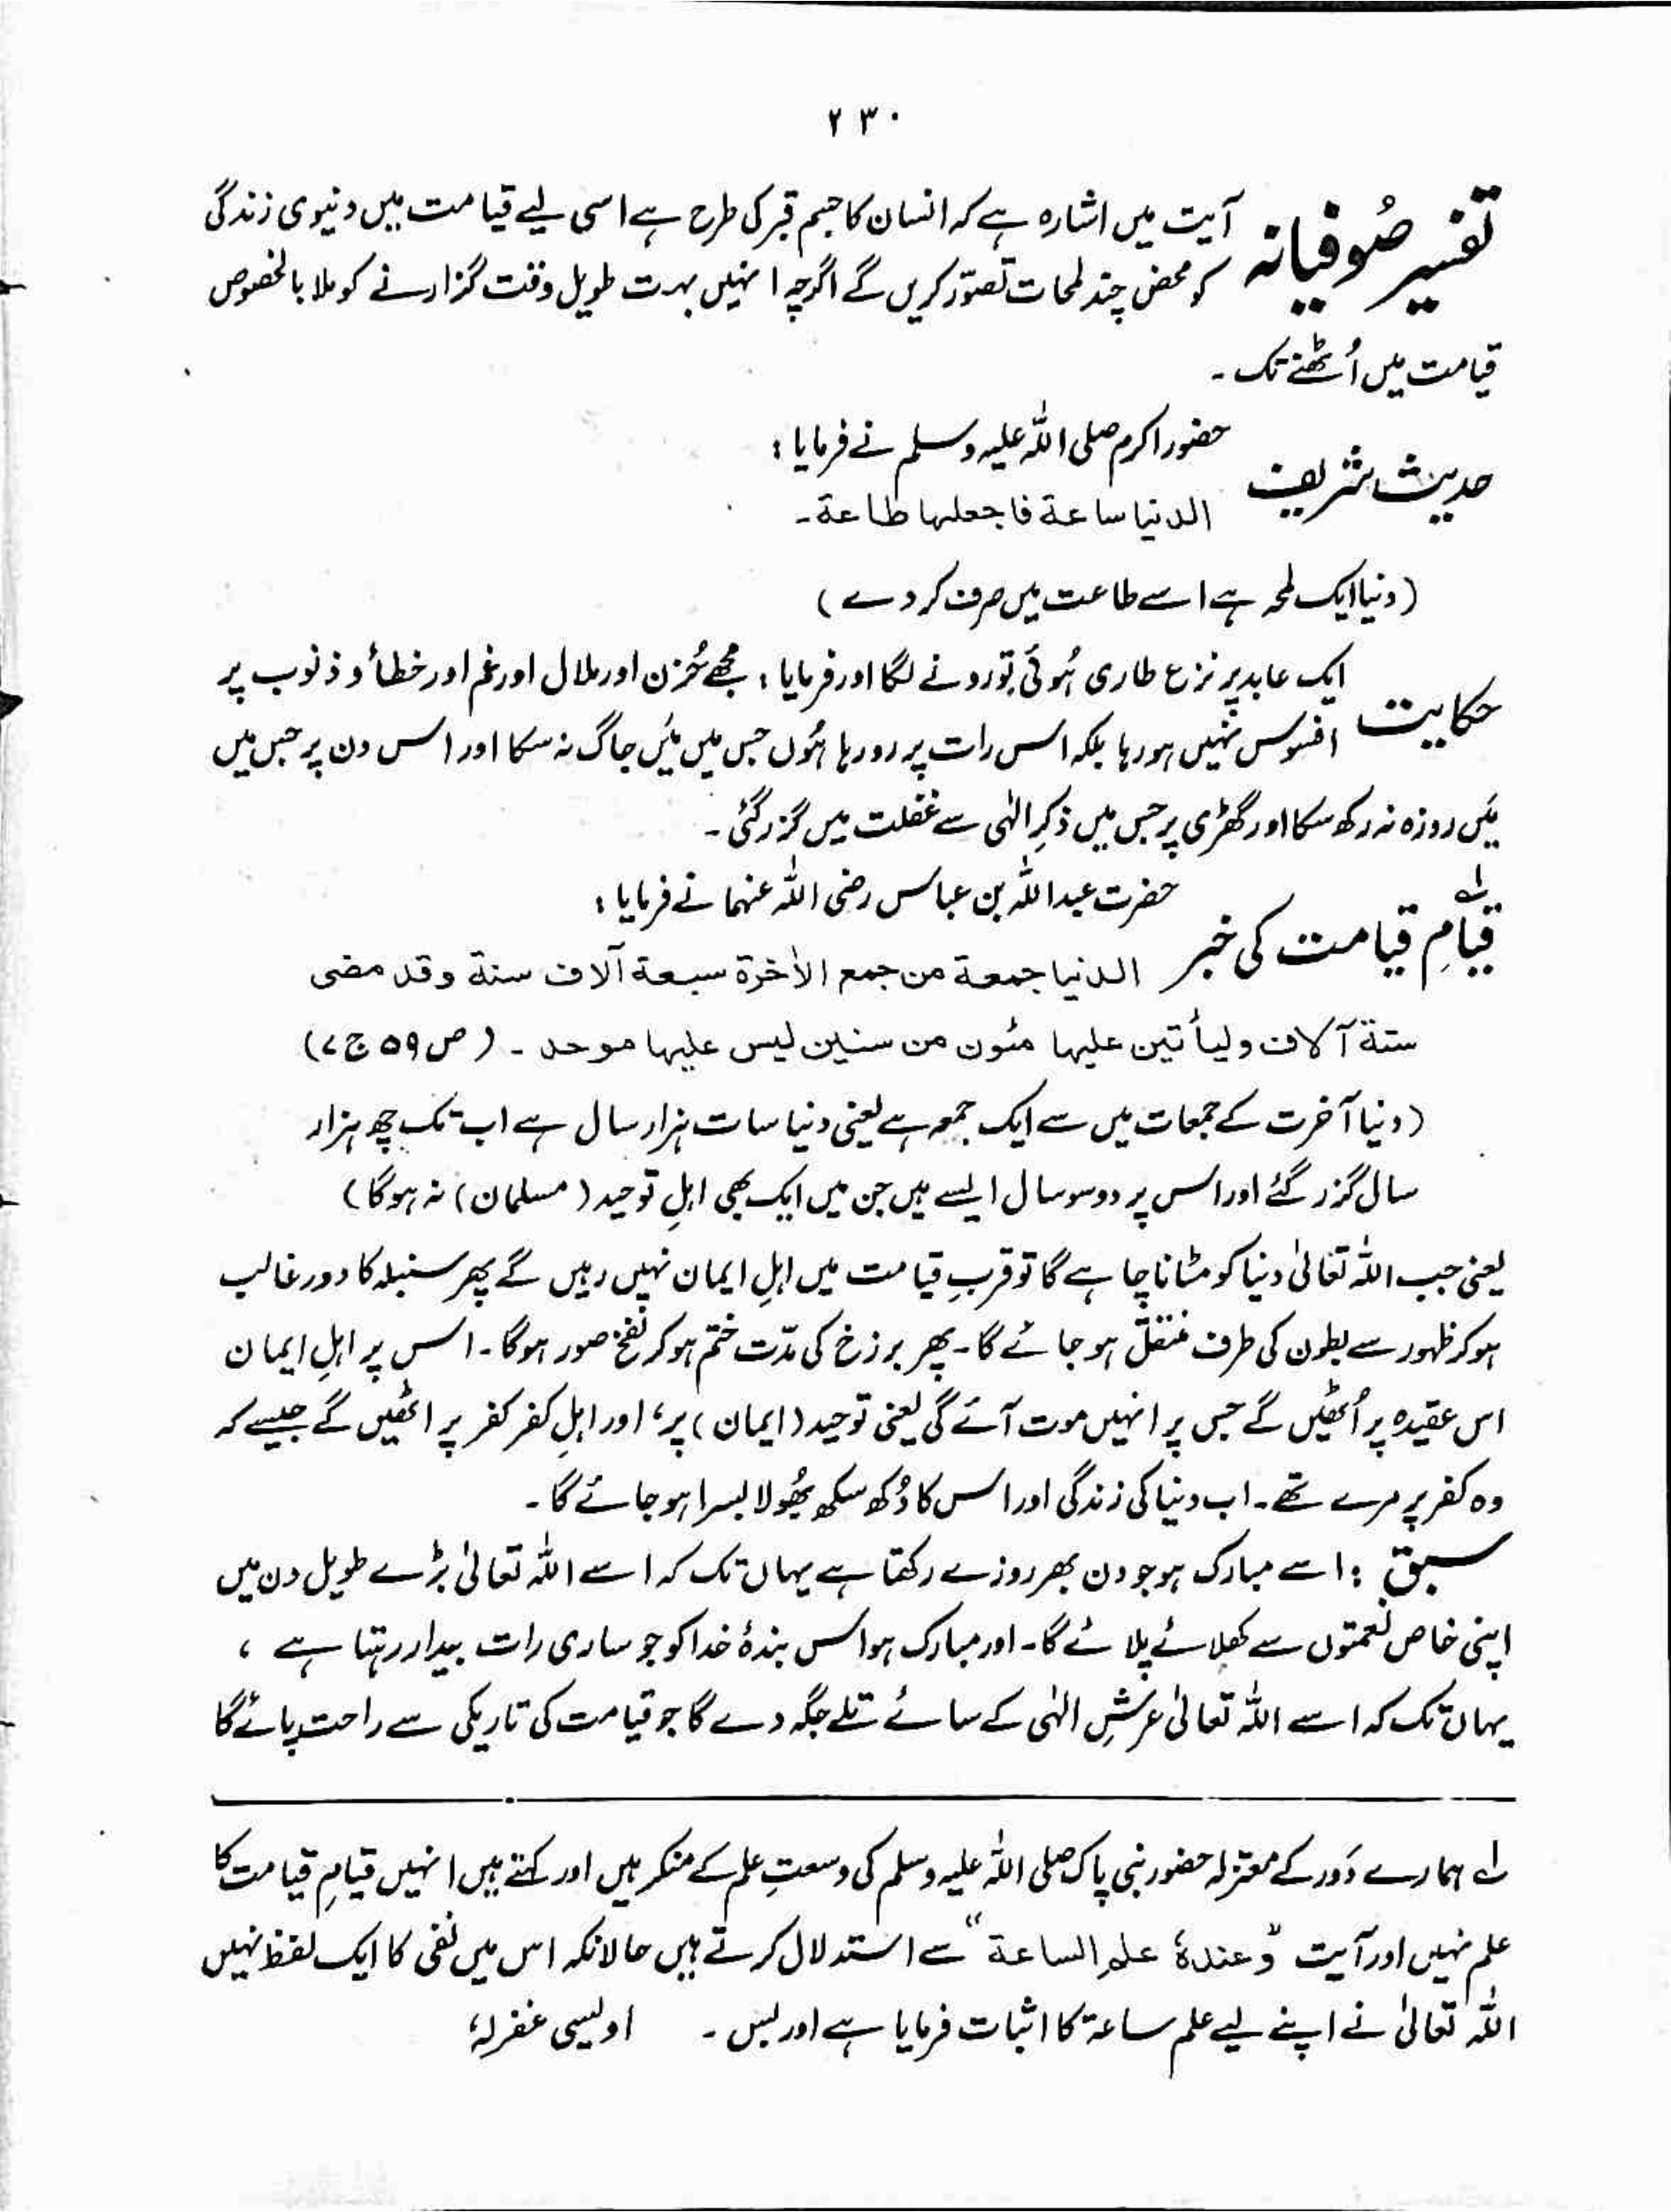 ۲۳۰
تفسیر صُوفیانہ آیت میں اشارہ ہے کہ انسان کا جسم قبر کی طرح ہے اسی لیے قیامت میں دنیوی زندگی
کو محض چند لمحات تصوّر کریں گے اگرچہ انہیں بہت طویل وقت گزارنے کو ملا بالخصوص
قیامت میں اُٹھنے تک۔
حدیث شریف حضور اکرم صلی اللہ علیہ وسلم نے فرمایا:
الدنیا ساعۃ فاجعلہا طاعۃ۔
(دنیا ایک لمحہ ہے اسے طاعت میں صرف کر دے)
حکایت ایک عابد پر نزع طاری ہُوئی تو رونے لگا اور فرمایا: مجھے حُزن اور ملال اور غم اور خطأ و ذنوب پر
افسوس نہیں ہو رہا بلکہ اس رات پر رو رہا ہُوں جس میں مَیں جاگ نہ سکا اور اس دن پر جس میں
مَیں روزہ نہ رکھ سکا اور گھڑی پر جس میں ذکرِ الٰہی سے غفلت میں گزر گئی۔
قیامِ قیامت کی خبر لے حضرت عبد اللہ بن عباس رضی اللہ عنہما نے فرمایا:
الدنیا جمعۃ من جمع الاٰخرۃ سبعۃ آلاف سنۃ وقد مضی
ستۃ آلاف ولیأتین علیہا مئون من سنین لیس علیہا موحد۔ (ص ۵۹ ج ۷)
(دنیا آخرت کے جمعات میں سے ایک جمعہ ہے یعنی دنیا سات ہزار سال ہے اب تک چھ ہزار
سال گزر گئے اور اس پر دو سو سال ایسے ہیں جن میں ایک بھی اہلِ توحید (مسلمان) نہ ہوگا)
یعنی جب اللہ تعالیٰ دنیا کو مٹانا چاہے گا تو قربِ قیامت میں اہلِ ایمان نہیں رہیں گے پھر سنبلہ کا دور غالب
ہو کر ظہور سے بطون کی طرف منتقل ہو جائے گا۔ پھر برزخ کی مدّت ختم ہو کر نفخِ صور ہوگا۔ اس پر اہلِ ایمان
اس عقیدہ پر اُٹھیں گے جس پر انہیں موت آئے گی یعنی توحید (ایمان) پر، اور اہلِ کفر کفر پر اٹھیں گے جیسے کہ
وہ کفر پر مرے تھے۔ اب دنیا کی زندگی اور اس کا دُکھ سکھ بھُولا بسرا ہو جائے گا۔
سبق: اسے مبارک ہو جو دن بھر روزے رکھتا ہے یہاں تک کہ اسے اللہ تعالیٰ بڑے طویل دن میں
اپنی خاص نعمتوں سے کھلائے پلائے گا۔ اور مبارک ہو اس بندۂ خدا کو جو ساری رات بیدار رہتا ہے،
یہاں تک کہ اسے اللہ تعالیٰ عرشِ الٰہی کے سائے تلے جگہ دے گا جو قیامت کی تاریکی سے راحت پائے گا
لے ہمارے دَور کے معتزلہ حضور نبی پاک صلی اللہ علیہ وسلم کی وسعتِ علم کے منکر ہیں اور کہتے ہیں انہیں قیامِ قیامت کا
علم نہیں اور آیت "وعندہٗ علم الساعۃ" سے استدلال کرتے ہیں حالانکہ اس میں نفی کا ایک لفظ نہیں
اللہ تعالیٰ نے اپنے لیے علم ساعۃ کا اثبات فرمایا ہے اور بس۔ اویسی غفرلہٗ